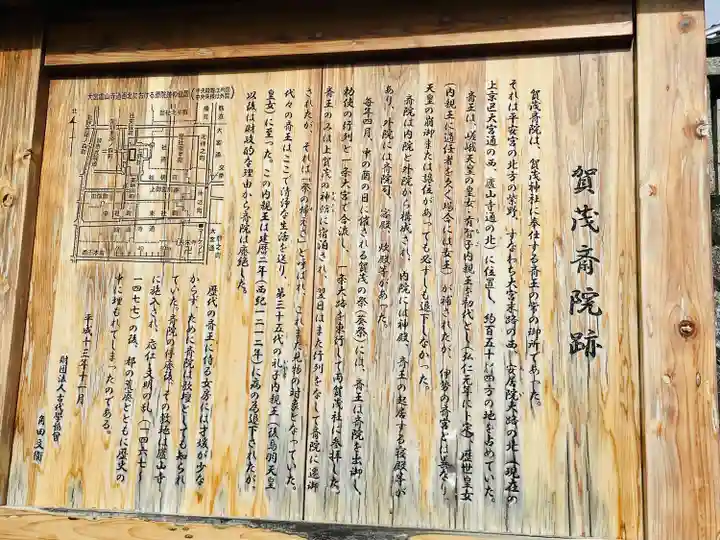 賀茂斎院跡
賀茂斎院は、賀茂神社に奉仕する斎王の常の御所であった。
それは平安宮の北方の紫野、すなわち大宮末路の西、安居院大路の北(現在の
上京区大宮通の西、廬山寺通の北)に位置し、約百五十m四方の地を占めていた。
斎王は、嵯峨天皇の皇女・有智子内親王を初代とし(弘仁元年に卜定)、歴世皇女
(内親王に適任者を欠く場合には女王)が補されたが、伊勢の斎宮とは異なり、
天皇の崩御または譲位があっても必ずしも退下しなかった。
斎院は内院と外院から構成され、内院には神殿、斎王の起居する寝殿等が
あり、外院には斎院司、客殿、炊殿等があった。
毎年四月、中の酉の日に催される賀茂の祭(葵祭)には、斎王は斎院を出御し、
勅使の行列と一条大宮で合流し、一条大路を東行して両賀茂社に参拝した。
斎王のみは上賀茂の神館に宿泊され、翌日はまた行列をなして斎院に還御
されたが、それは「祭の帰さ」と呼ばれ、これまた見物の対象となっていた。
代々の斎王はここで清浄な生活を送り、第三十五代の礼子内親王(後鳥羽天皇
皇女)に至った。この内親王は建暦二年(西紀一二一二年)に病の為退下されたが、
以後は財政的な理由から斎院は廃絶した。
歴代の斎王に侍る女房には才媛が少な
からず、ために斎院は歌壇としても知られ
ていた。斎院の停廃後、その敷地は廬山寺
に施入され、応仁・文明の乱(一四六七〜
一四七七)の後、都の荒廃とともに歴史の
中に埋もれてしまったのである。
平成十三年十一月
財団法人古代學協會
角田文衞
大宮廬山寺通西北における斎院跡の位置
北
大宮通